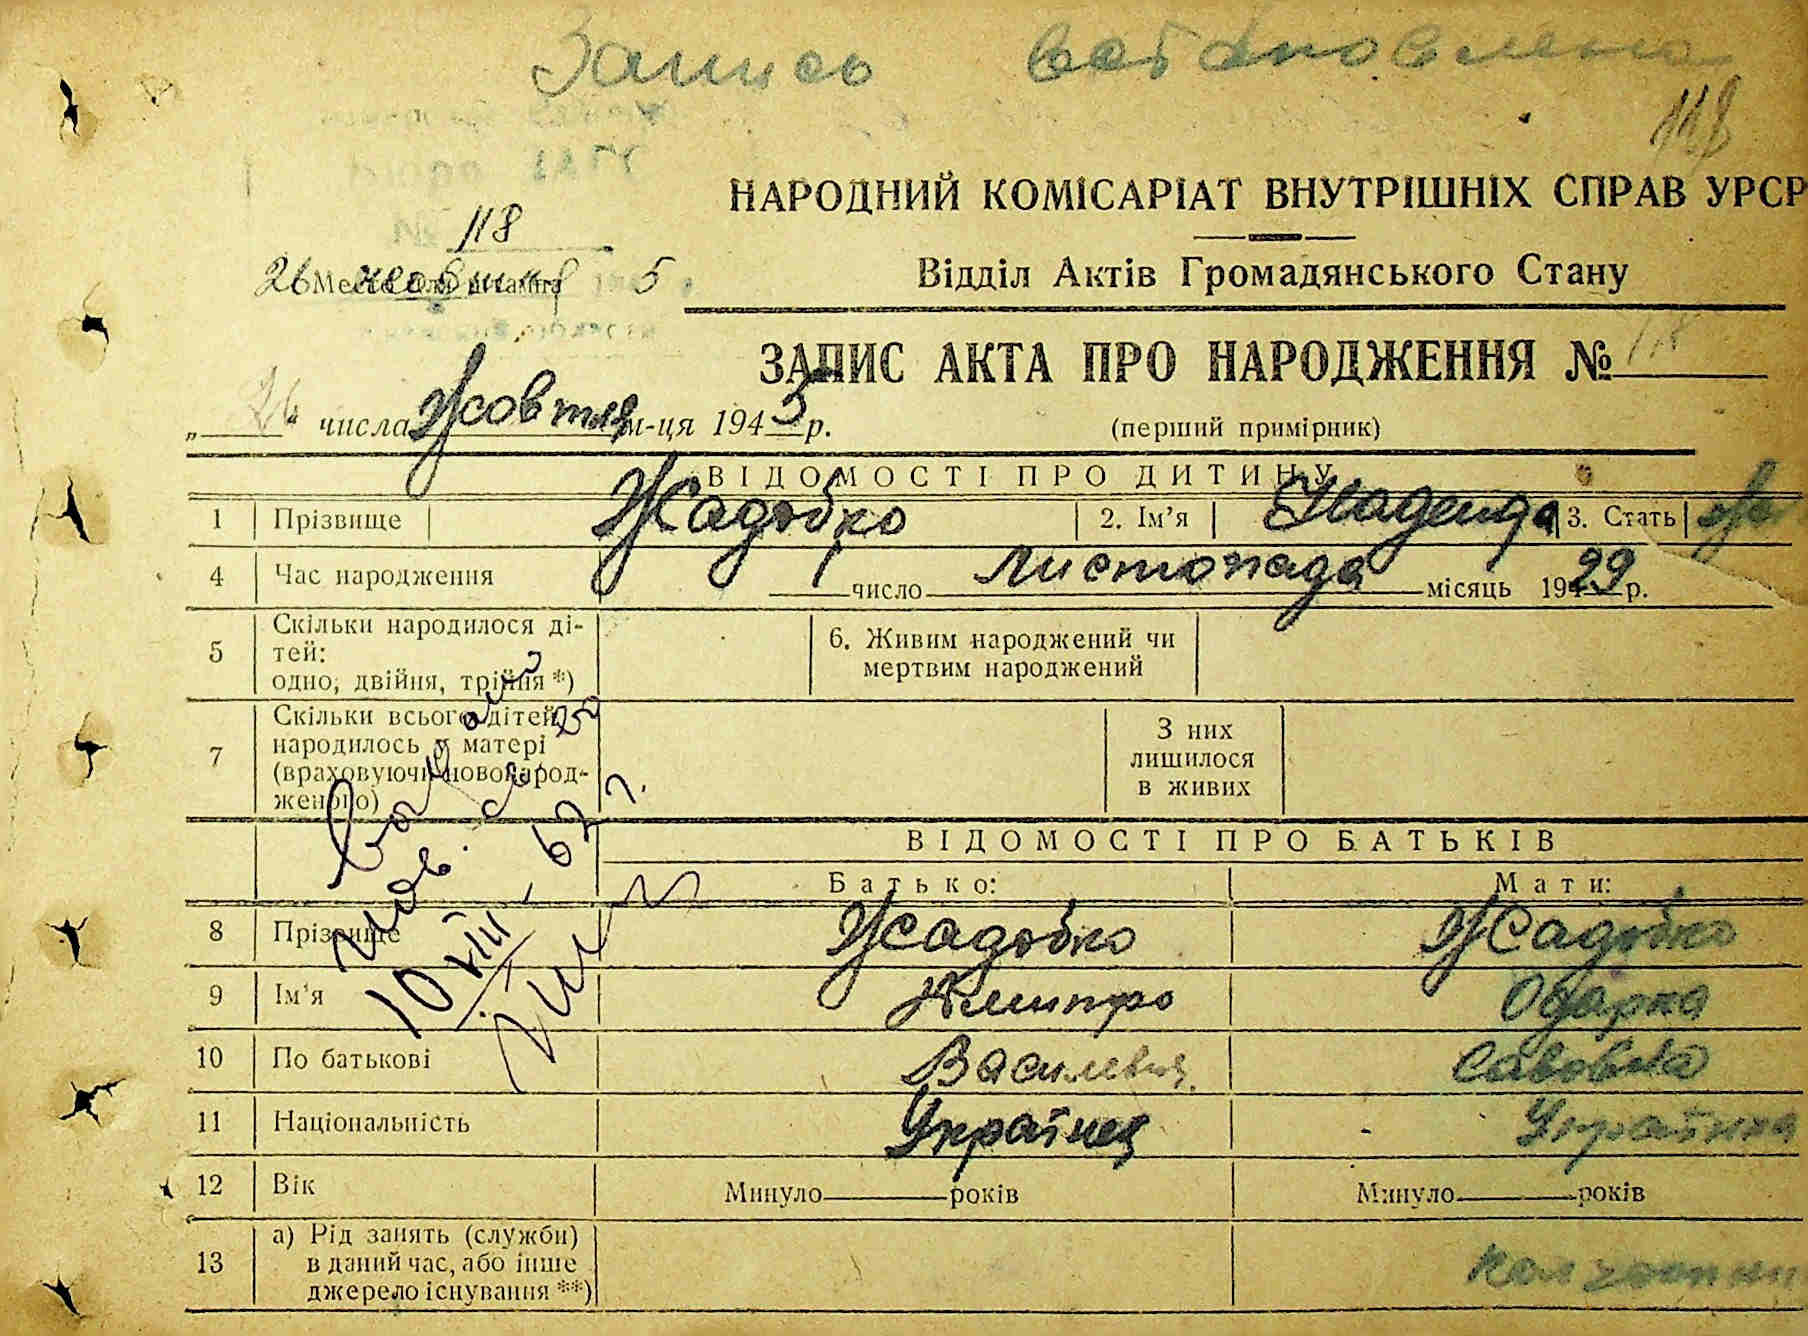 Запись востановлена
118
НАРОДНИЙ КОМІСАРІАТ ВНУТРІШНІХ СПРАВ УРСР
118
26 5
Відділ Актів Громадянського Стану
ЗАПИС АКТА ПРО НАРОДЖЕННЯ № 118
„26“ числа Жовтня м-ця 1945 р. (перший примірник)
ВІДОМОСТІ ПРО ДИТИНУ
1 Прізвище Жадобко 2. Ім’я Надежда 3. Стать
4 Час народження 1 число Листопада місяць 1929 р.
5 Скільки народилося ді-
тей:
одно, двійня, трійня *)
6. Живим народжений чи
мертвим народжений
7 Скільки всього дітей
народилось у матері
(враховуючи новонарод-
женого)
З них
лишилося
в живих
Выдано
пов. св-во
10 VIII - 67 г.
ВІДОМОСТІ ПРО БАТЬКІВ
Батько: Мати:
8 Прізвище Жадобко Жадобко
9 Ім’я Дмитро Одарка
10 По батькові Василевич Савовна
11 Національність Українец Українка
12 Вік Минуло років Минуло років
13 а) Рід занять (служби)
в даний час, або інше
джерело існування **)